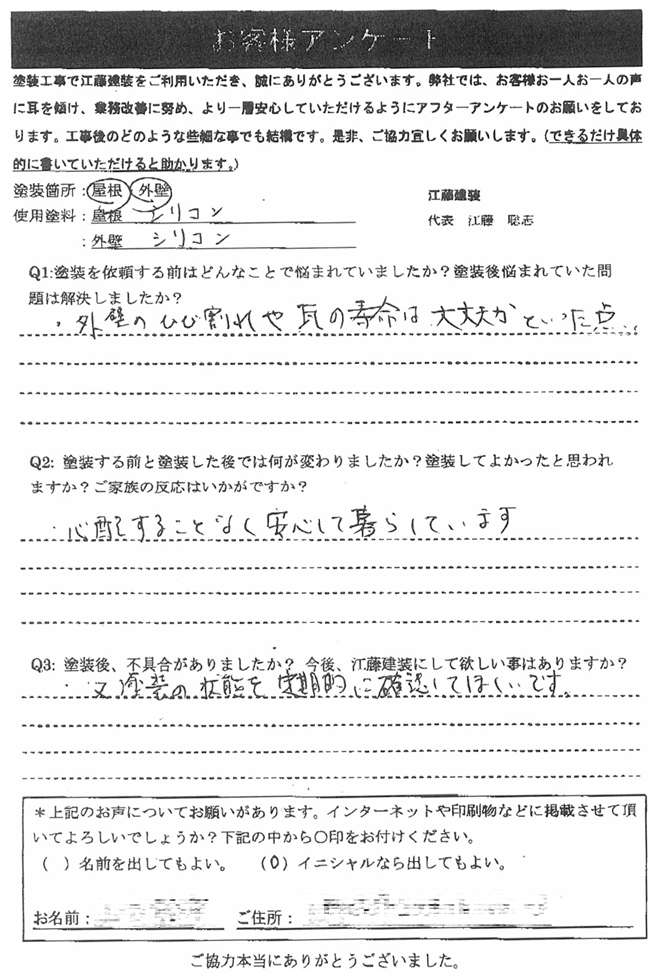 お客様アンケート
塗装工事で江藤建装をご利用いただき、誠にありがとうございます。弊社では、お客様お一人お一人の声
に耳を傾け、業務改善に努め、より一層安心していただけるようにアフターアンケートのお願いをしてお
ります。工事後のどのような些細な事でも結構です。是非、ご協力宜しくお願いします。(できるだけ具体
的に書いていただけると助かります。)
塗装箇所:屋根・外壁
江藤建装
使用塗料:屋根 シリコン
代表 江藤 聡志
:外壁 シリコン
Q1:塗装を依頼する前はどんなことで悩まれていましたか?塗装後悩まれていた問
題は解決しましたか?
・外壁のひび割れや瓦の寿命は大丈夫かといった点
Q2: 塗装する前と塗装した後では何が変わりましたか?塗装してよかったと思われ
ますか?ご家族の反応はいかがですか?
・心配することなく安心して暮らしています
Q3: 塗装後、不具合がありましたか? 今後、江藤建装にして欲しい事はありますか?
・又塗装の状態を定期的に確認してほしいです。
*上記のお声についてお願いがあります。インターネットや印刷物などに掲載させて頂
いてよろしいでしょうか?下記の中から○印をお付けください。
( )名前を出してもよい。 (O)イニシャルなら出してもよい。
お名前: ご住所:
ご協力本当にありがとうございました。